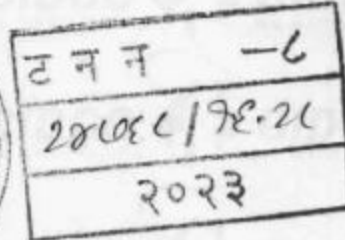 ट न न -८
२४८७६८/१६.२८
२०२३